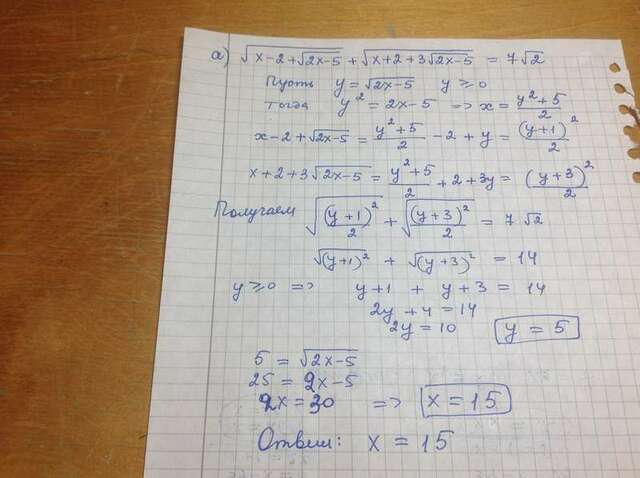 а) √(x-2+√(2x-5)) + √(x+2+3√(2x-5)) = 7√2
Пусть y = √(2x-5) y ⩾ 0
тогда y² = 2x-5 => x = (y²+5)/2
x-2+√(2x-5) = (y²+5)/2 - 2 + y = (y+1)²/2
x+2+3√(2x-5) = (y²+5)/2 + 2 + 3y = (y+3)²/2
Получаем √((y+1)²/2) + √((y+3)²/2) = 7√2
√(y+1)² + √(y+3)² = 14
y ⩾ 0 => y+1 + y+3 = 14
2y + 4 = 14
2y = 10 y = 5
5 = √(2x-5)
25 = 2x-5
2x = 30 => x = 15
Ответ: x = 15